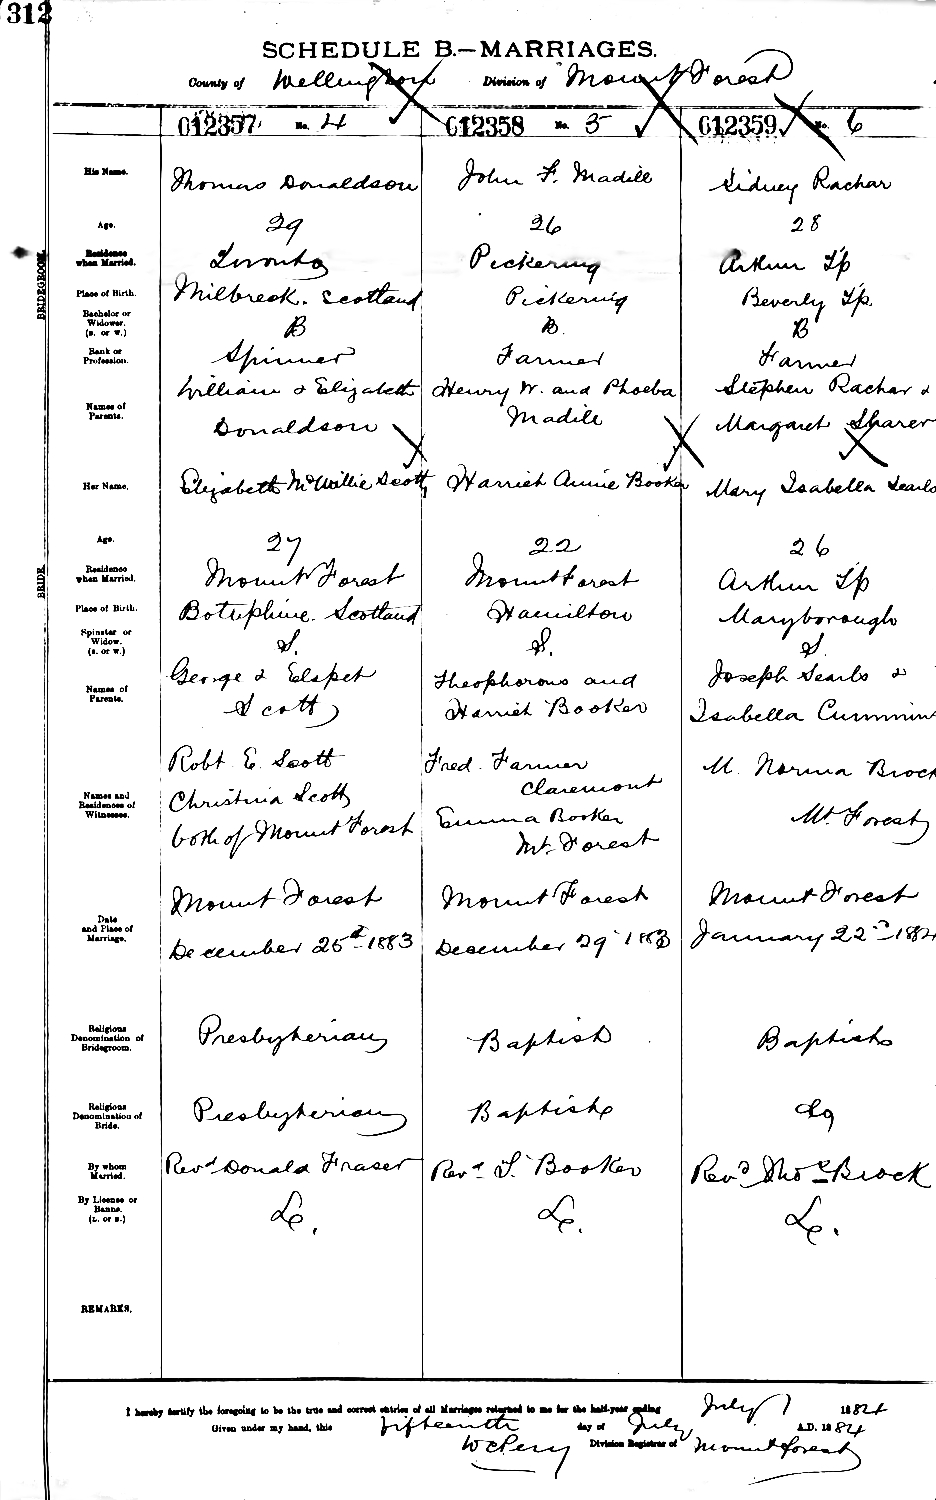 312
SCHEDULE B.—MARRIAGES.
County of Wellington Division of Mount Forest
012357 No. 4 012358 No. 5 012359 No. 6
His Name. Thomas Donaldson John F. Madill Sidney Rachar
Age. 29 26 28
BRIDEGROOM.
Residence when Married. Toronto Pickering Arthur Tp
Place of Birth. Milbreck. Scotland Pickering Beverly Tp.
Bachelor or Widower. (B. or W.) B B. B
Rank or Profession. Spinner Farmer Farmer
Names of Parents. William & Elizabeth Donaldson Henry W. and Phoeba Madill Stephen Rachar & Margaret Sharer
Her Name. Elizabeth McWillie Scott Harriet Annie Booker Mary Isabella Searls
Age. 27 22 26
BRIDE.
Residence when Married. Mount Forest Mount Forest Arthur Tp
Place of Birth. Botriphine. Scotland Hamilton Maryborough
Spinster or Widow. (S. or W.) S. S. S
Names of Parents. George & Elspet Scott Theophorous and Harriet Booker Joseph Searls & Isabella Cummin
Names and Residences of Witnesses. Robt E. Scott Christina Scott both of Mount Forest Fred. Farmer Claremont Emma Booker Mt. Forest M. Norma Brock Mt. Forest
Date and Place of Marriage. Mount Forest December 25th 1883 Mount Forest December 29 1883 Mount Forest January 22nd 188
Religious Denomination of Bridegroom. Presbyterian Baptist Baptist
Religious Denomination of Bride. Presbyterian Baptist Do
By whom Married. Revd Donald Fraser Revd T. Booker Revd Thos Brock
By License or Banns. (L. or B.) L. L. L.
REMARKS.
I hereby certify the foregoing to be the true and correct entries of all Marriages returned to me for the half-year ending July 1 1884
Given under my hand, this fifteenth day of July A.D. 1884
W C Perry Division Registrar of Mount Forest